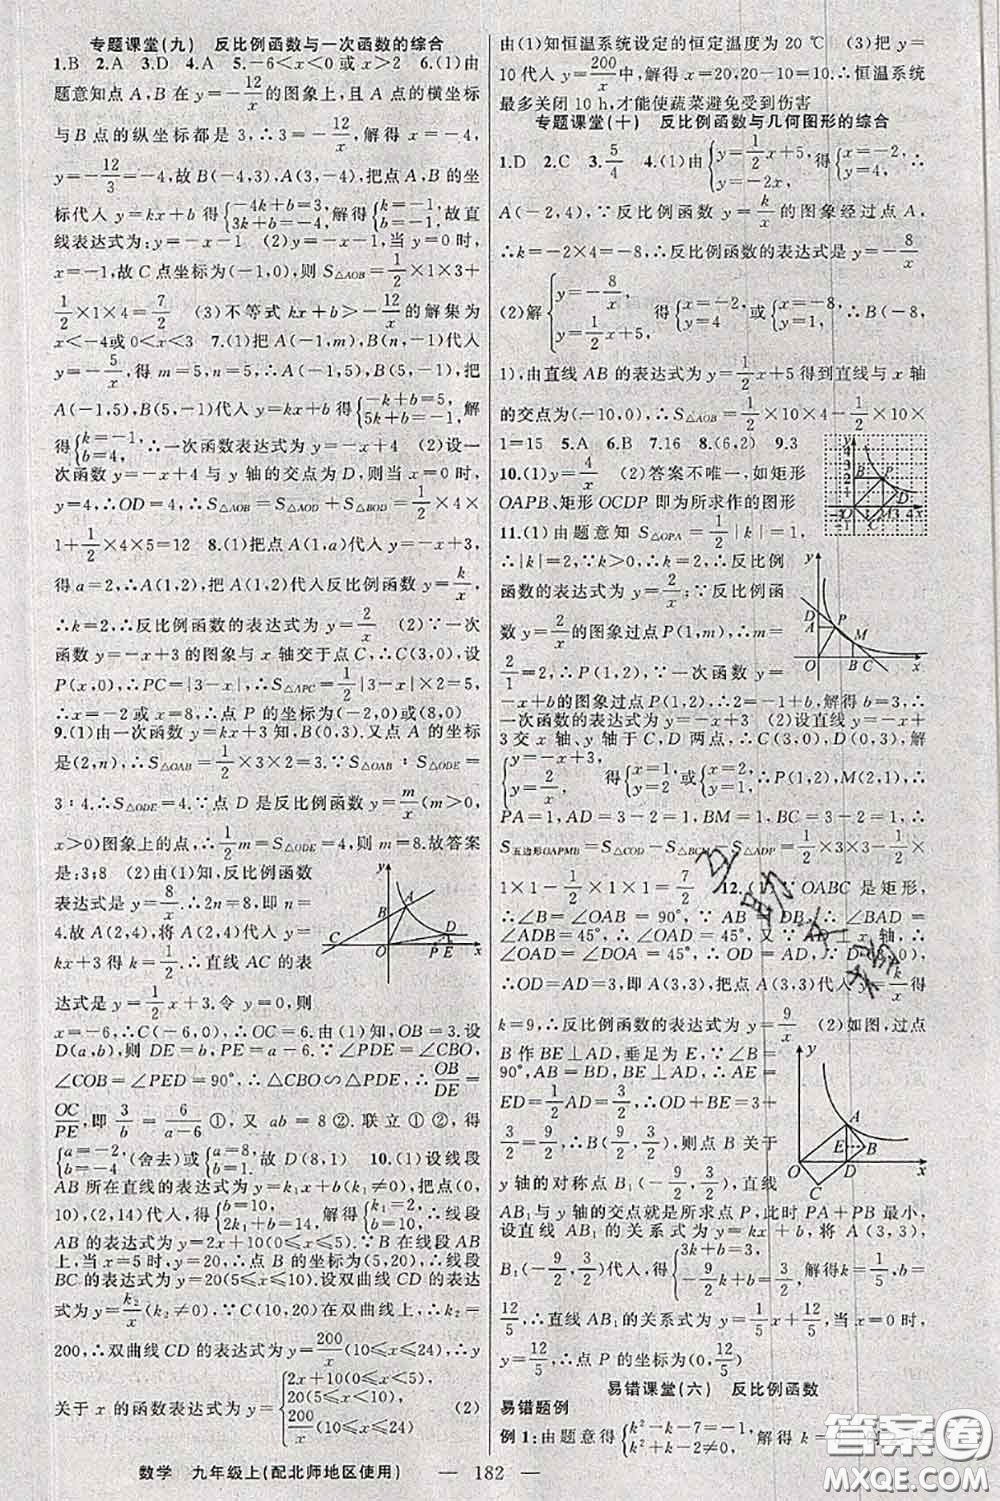 专题课堂(九)　反比例函数与一次函数的综合
1.B　2.A　3.D　4.A　5.-6<x<0或x>2　6.(1)由
题意知点A,B在y=-12/x的图象上,且A点的横坐标
与B点的纵坐标都是3,∴3=-12/x,解得x=-4,
y=-12/3=-4,故B(-4,3),A(3,-4),把点A,B的坐
标代入y=kx+b得{-4k+b=3, 3k+b=-4,解得{k=-1, b=-1,故直
线表达式为:y=-x-1　(2)y=-x-1,当y=0时,
x=-1,故C点坐标为(-1,0),则S△AOB=1/2×1×3+
1/2×1×4=7/2　(3)不等式kx+b>-12/x的解集为
x<-4或0<x<3　7.(1)把A(-1,m),B(n,-1)代入
y=-5/x,得m=5,n=5,∴A(-1,5),B(5,-1),把
点A(-1,5),B(5,-1)代入y=kx+b得{-k+b=5, 5k+b=-1,解
得{k=-1, b=4,∴一次函数表达式为y=-x+4　(2)设一
次函数y=-x+4与y轴的交点为D,则当x=0时,
y=4,∴OD=4,∴S△AOB=S△AOD+S△BOD=1/2×4×
1+1/2×4×5=12　8.(1)把点A(1,a)代入y=-x+3,
得a=2,∴A(1,2),把A(1,2)代入反比例函数y=k/x,
∴k=2,∴反比例函数的表达式为y=2/x　(2)∵一次
函数y=-x+3的图象与x轴交于点C,∴C(3,0),设
P(x,0),∴PC=|3-x|,∴S△APC=1/2|3-x|×2=5,
∴x=-2或x=8,∴点P的坐标为(-2,0)或(8,0)
9.(1)由一次函数y=kx+3知,B(0,3).又点A的坐标
是(2,n),∴S△OAB=1/2×3×2=3.∵S△OAB:S△ODE=
3:4.∴S△ODE=4.∵点D是反比例函数y=m/x(m>0,
x>0)图象上的点,∴1/2m=S△ODE=4,则m=8.故答案
是:3;8　(2)由(1)知,反比例函数
表达式是y=8/x.∴2n=8,即n=
4.故A(2,4),将A(2,4)代入y=
kx+3得k=1/2.∴直线AC的表
达式是y=1/2x+3.令y=0,则
x=-6,∴C(-6,0),∴OC=6.由(1)知,OB=3.设
D(a,b),则DE=b,PE=a-6.∵∠PDE=∠CBO,
∠COB=∠PED=90°,∴△CBO∽△PDE,∴OB/DE=
OC/PE,即3/b=6/(a-6)①,又ab=8②.联立①②,得
{a=-2, b=-4,(舍去)或{a=8, b=1,故D(8,1)　10.(1)设线段
AB所在直线的表达式为y=k₁x+b(k≠0),把点(0,
10),(2,14)代入,得{b=10, 2k₁+b=14,解得{k₁=2, b=10,∴线段
AB的表达式为y=2x+10(0≤x<5).∵B在线段AB
上,当x=5时,y=20,∴点B的坐标为(5,20),∴线段
BC的表达式为y=20(5≤x≤10).设双曲线CD的表达
式为y=k₂/x(k₂≠0).∵C(10,20)在双曲线上,∴k₂=
200,∴双曲线CD的表达式为y=200/x(10≤x≤24),∴y
关于x的函数表达式为y={2x+10(0≤x≤5), 20(5≤x≤10), 200/x(10≤x≤24)　(2)
由(1)知恒温系统设定的恒定温度为20 ℃　(3)把y=
10代入y=200/x中,解得x=20,20-10=10,∴恒温系统
最多关闭10 h,才能使蔬菜避免受到伤害
专题课堂(十)　反比例函数与几何图形的综合
1.D　2.C　3.5/4　4.(1)由{y=1/2x+5, y=-2x,得{x=-2, y=4,∴
A(-2,4),∵反比例函数y=k/x的图象经过点A,
∴k=-2×4=-8,∴反比例函数的表达式是y=-8/x
(2)解{y=-8/x, y=1/2x+5,得{x=-2, y=4或{x=-8, y=1,∴B(-8,
1),由直线AB的表达式为y=1/2x+5得到直线与x轴
的交点为(-10,0),∴S△AOB=1/2×10×4-1/2×10×
1=15　5.A　6.B　7.16　8.(6,2)　9.3
10.(1)y=4/x　(2)答案不唯一,如矩形
OAPB、矩形OCDP即为所求作的图形
11.(1)由题意知S△OPA=1/2|k|=1,
∴|k|=2,∵k>0,∴k=2,∴反比例
函数的表达式为y=2/x;∵反比例函
数y=2/x的图象过点P(1,m),∴m=
2/1=2,∴P(1,2),∵一次函数y=
-x+b的图象过点P(1,2),∴2=-1+b,解得b=3,∴
一次函数的表达式为y=-x+3　(2)设直线y=-x+
3交x轴、y轴于C,D两点,∴C(3,0),D(0,3),解
{y=-x+3, y=2/x得{x=1, y=2或{x=2, y=1,∴P(1,2),M(2,1),∴
PA=1,AD=3-2=1,BM=1,BC=3-2=1,∴
S五边形OAPMB=S△COD-S△BCM-S△ADP=1/2×3×3-1/2
×1×1-1/2×1×1=7/2　12.(1)∵OABC是矩形,
∴∠B=∠OAB=90°,∵AB=DB,∴∠BAD=
∠ADB=45°,∴∠OAD=45°,又∵AD⊥x轴,∴
∠OAD=∠DOA=45°,∴OD=AD,∵D(3,0),
∴OD=AD=3,即A(3,3),把点A(3,3)代入y=k/x得
k=9,∴反比例函数的表达式为y=9/x　(2)如图,过点
B作BE⊥AD,垂足为E,∵∠B=
90°,AB=BD,BE⊥AD,∴AE=
ED=1/2AD=3/2,∴OD+BE=3+
3/2=9/2,∴B(9/2,3/2),则点B关于
y轴的对称点B₁(-9/2,3/2),直线
AB₁与y轴的交点就是所求点P,此时PA+PB最小,
设直线AB₁的关系式为y=kx+b,将A(3,3),
B₁(-9/2,3/2)代入得{3k+b=3, -9/2k+b=3/2,解得k=1/5,b=
12/5,∴直线AB₁的关系式为y=1/5x+12/5,当x=0时,
y=12/5,∴点P的坐标为(0,12/5)
易错课堂(六)　反比例函数
易错题例
例1:由题意得{k²-k-7=-1,
数学　九年级上(配北师地区使用)　— 182 —
答案圈
MXQE.COM